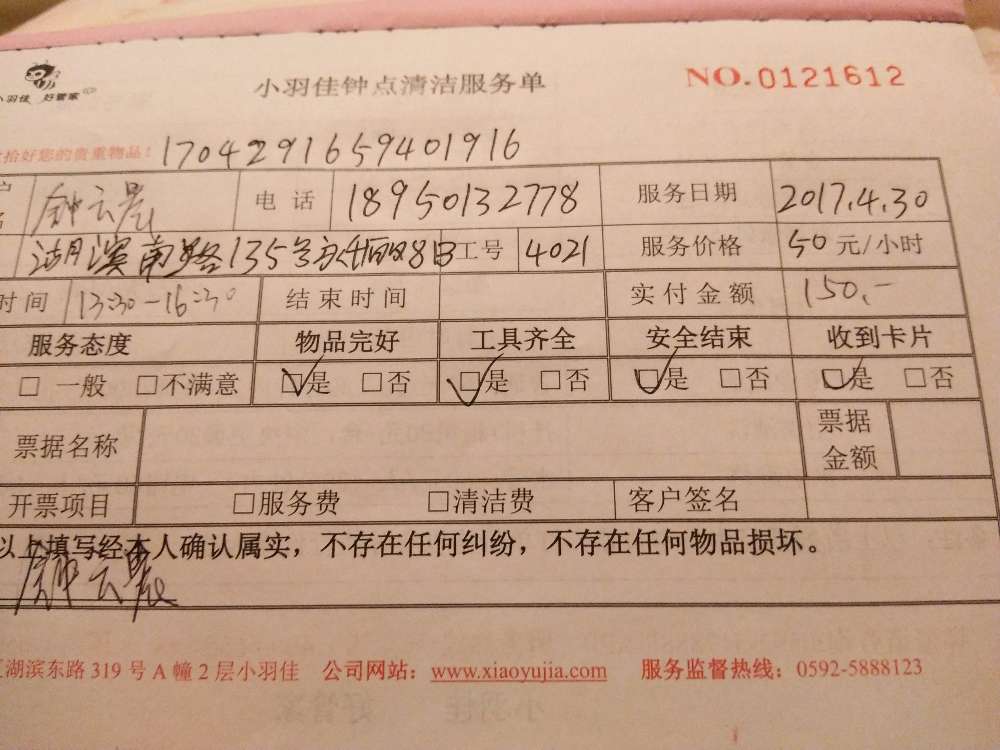 小羽佳 好管家
小羽佳钟点清洁服务单 NO.0121612
拾好您的贵重物品! 1704291659401916
钟云晨 电话 18950132778 服务日期 2017.4.30
湖滨南路135号 工号 4021 服务价格 50元/小时
时间 13:30-16:30 结束时间 实付金额 150.-
服务态度 物品完好 工具齐全 安全结束 收到卡片
□ 一般 □不满意 ☑是 □否 ☑是 □否 ☑是 □否 ☑是 □否
票据名称 票据金额
开票项目 □服务费 □清洁费 客户签名
以上填写经本人确认属实，不存在任何纠纷，不存在任何物品损坏。
钟云晨
湖滨东路319号A幢2层小羽佳 公司网站：www.xiaoyujia.com 服务监督热线：0592-5888123